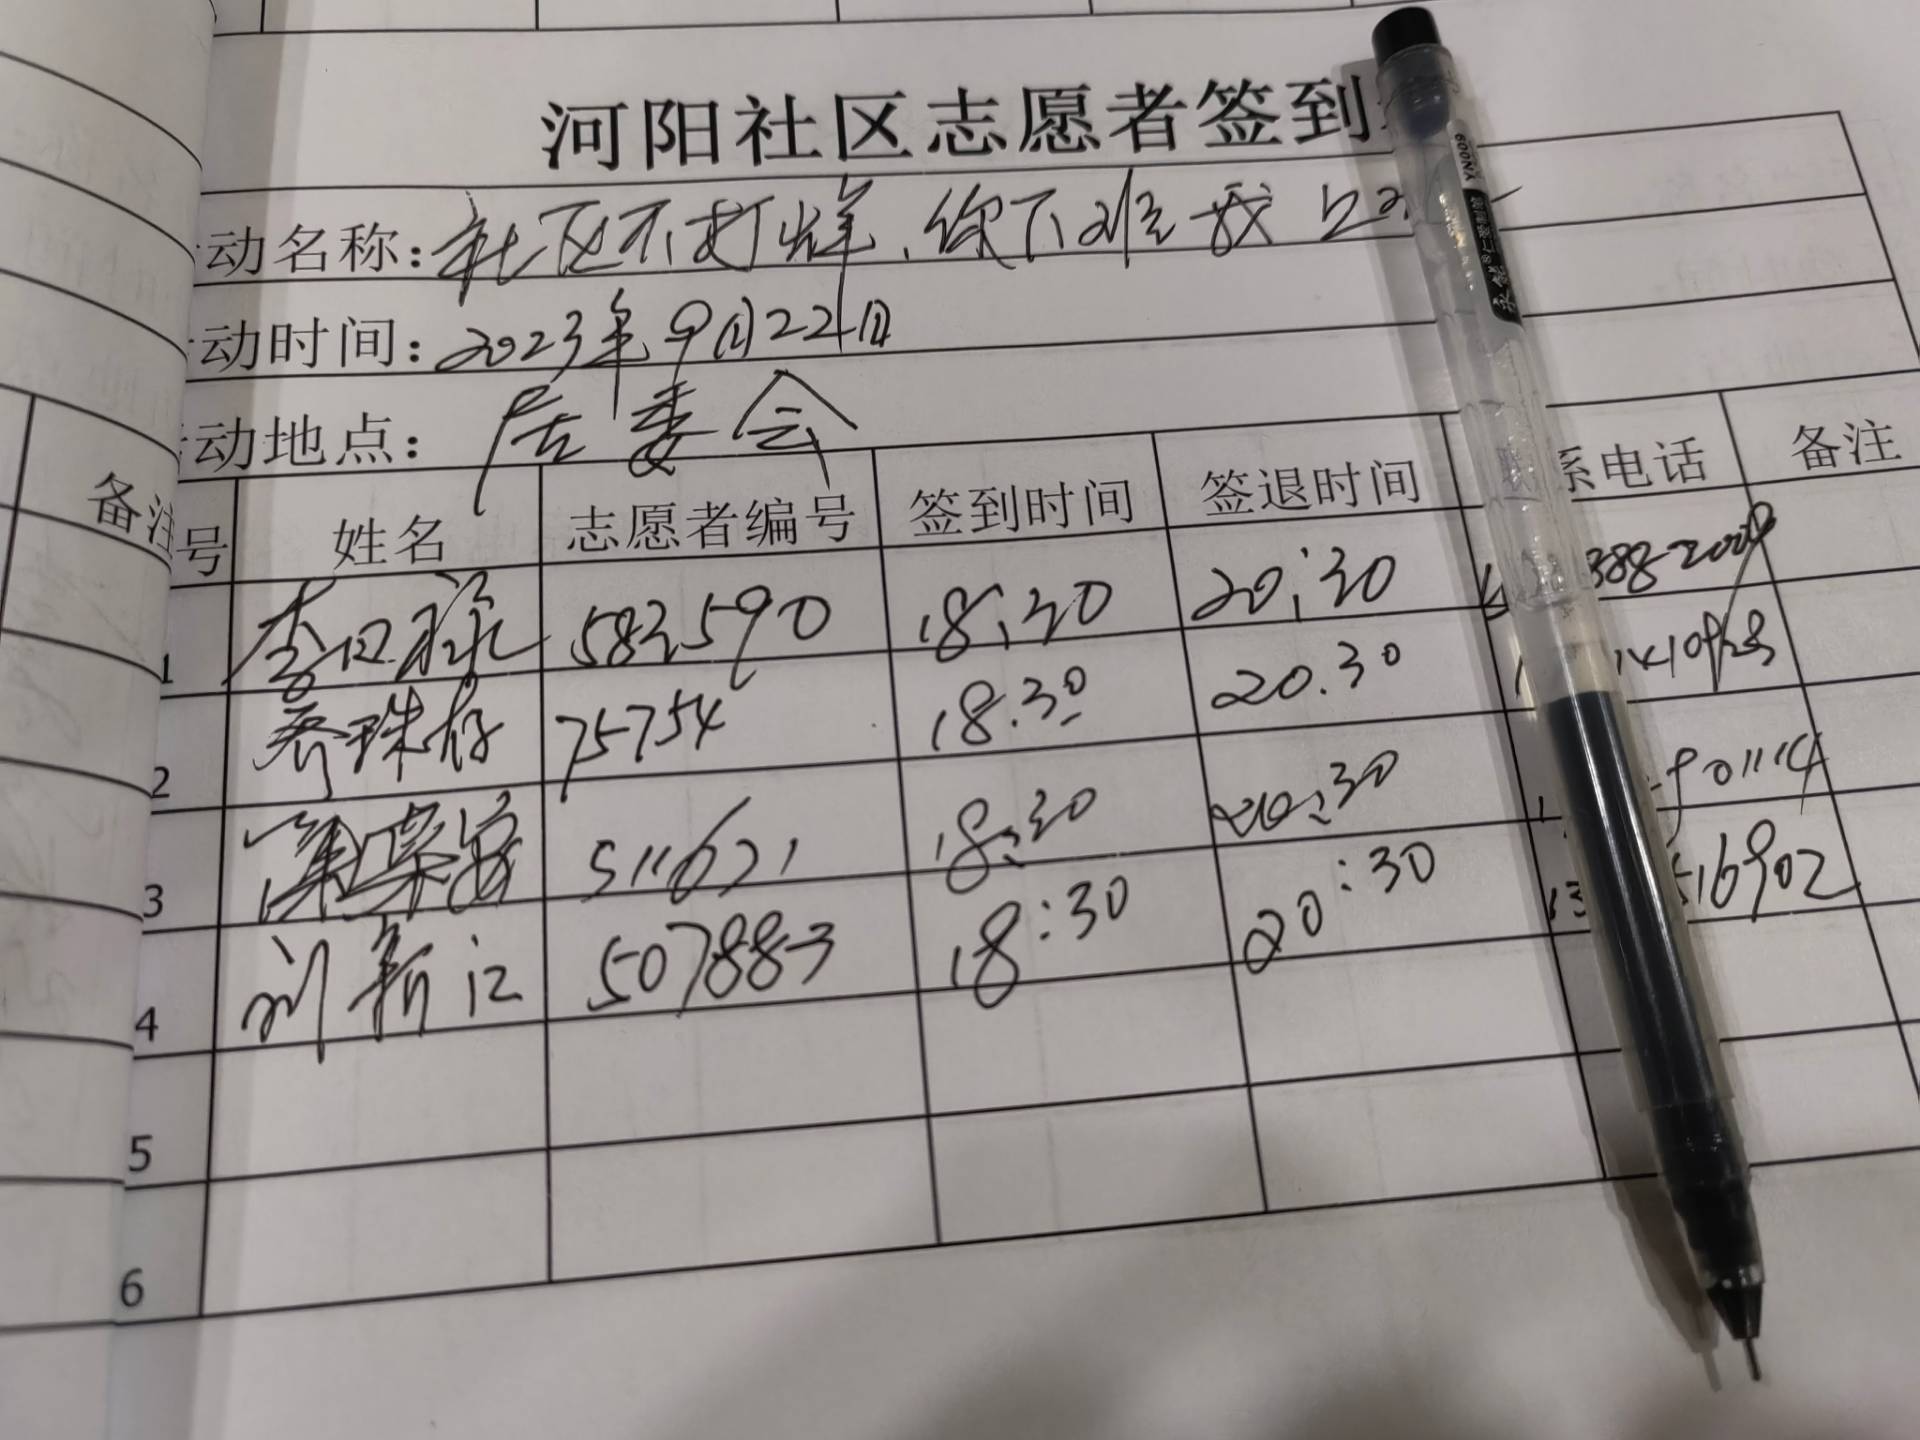 河阳社区志愿者签到
动名称：社区不打烊、你下难我上
动时间：2023年9月22日
动地点：居委会
备注
号 姓名 志愿者编号 签到时间 签退时间 系电话 备注
1 583590 18:30 20:30 388-2009
2 75754 18.30 20.30
3 511621 18:30 20:30 90114
4 刘新江 507883 18:30 20:30 13 516902
5
6
YN009